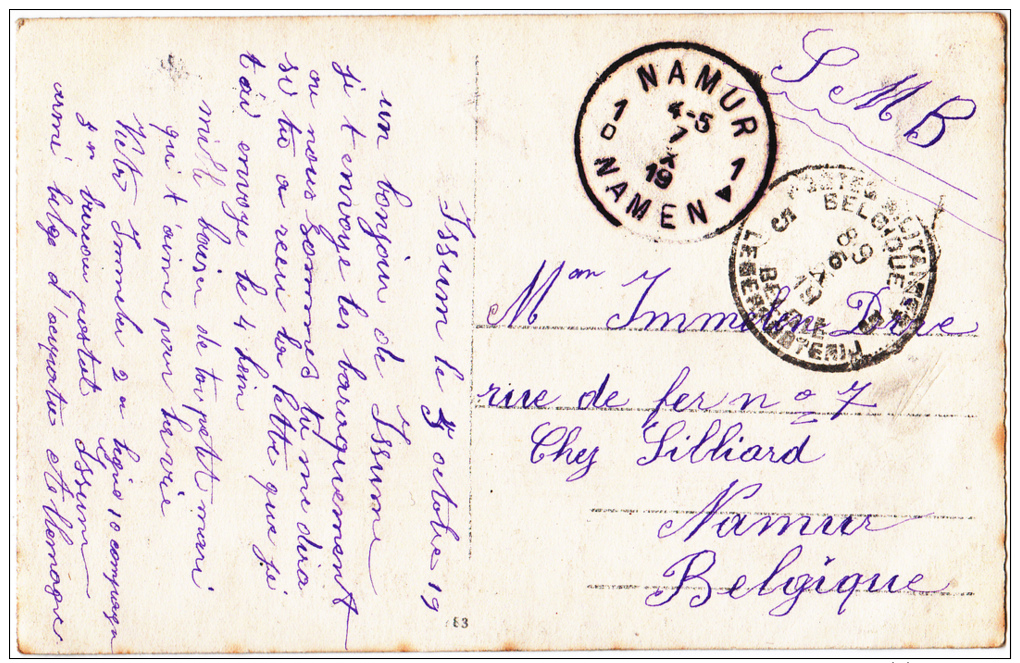 Issum le octobre 19
un bonjour de Issum
je t envoye les baraquement
ou nous sommes tu me dira
si tu a recu la lettre que je
t ai envoye le 4
mille baiser de ton petit mari
qui t aime pour la vie
Victor Immelen 2 ligne 10 compagn
bureau postal Issum
armé belge d'occupation
S M B
NAMUR 1
4-5
7
X
19
1 NAMEN
POSTES MILITAIRES
BELGIQUE
5
BELGIE
LEGERPOSTERIJ
Immelen
rue de fer n o 7
Chez Silliard
Namur
Belgique
83